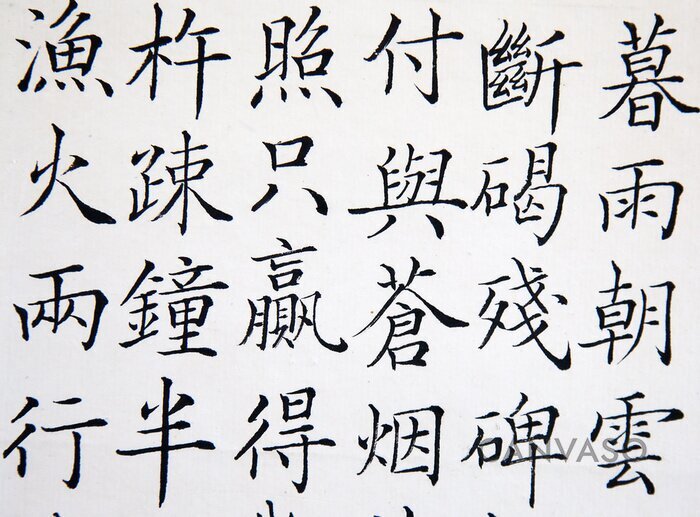 暮雨朝雲
斷碣殘碑
付與蒼烟
照只贏得
杵疎鐘半
漁火兩行
CANVASO